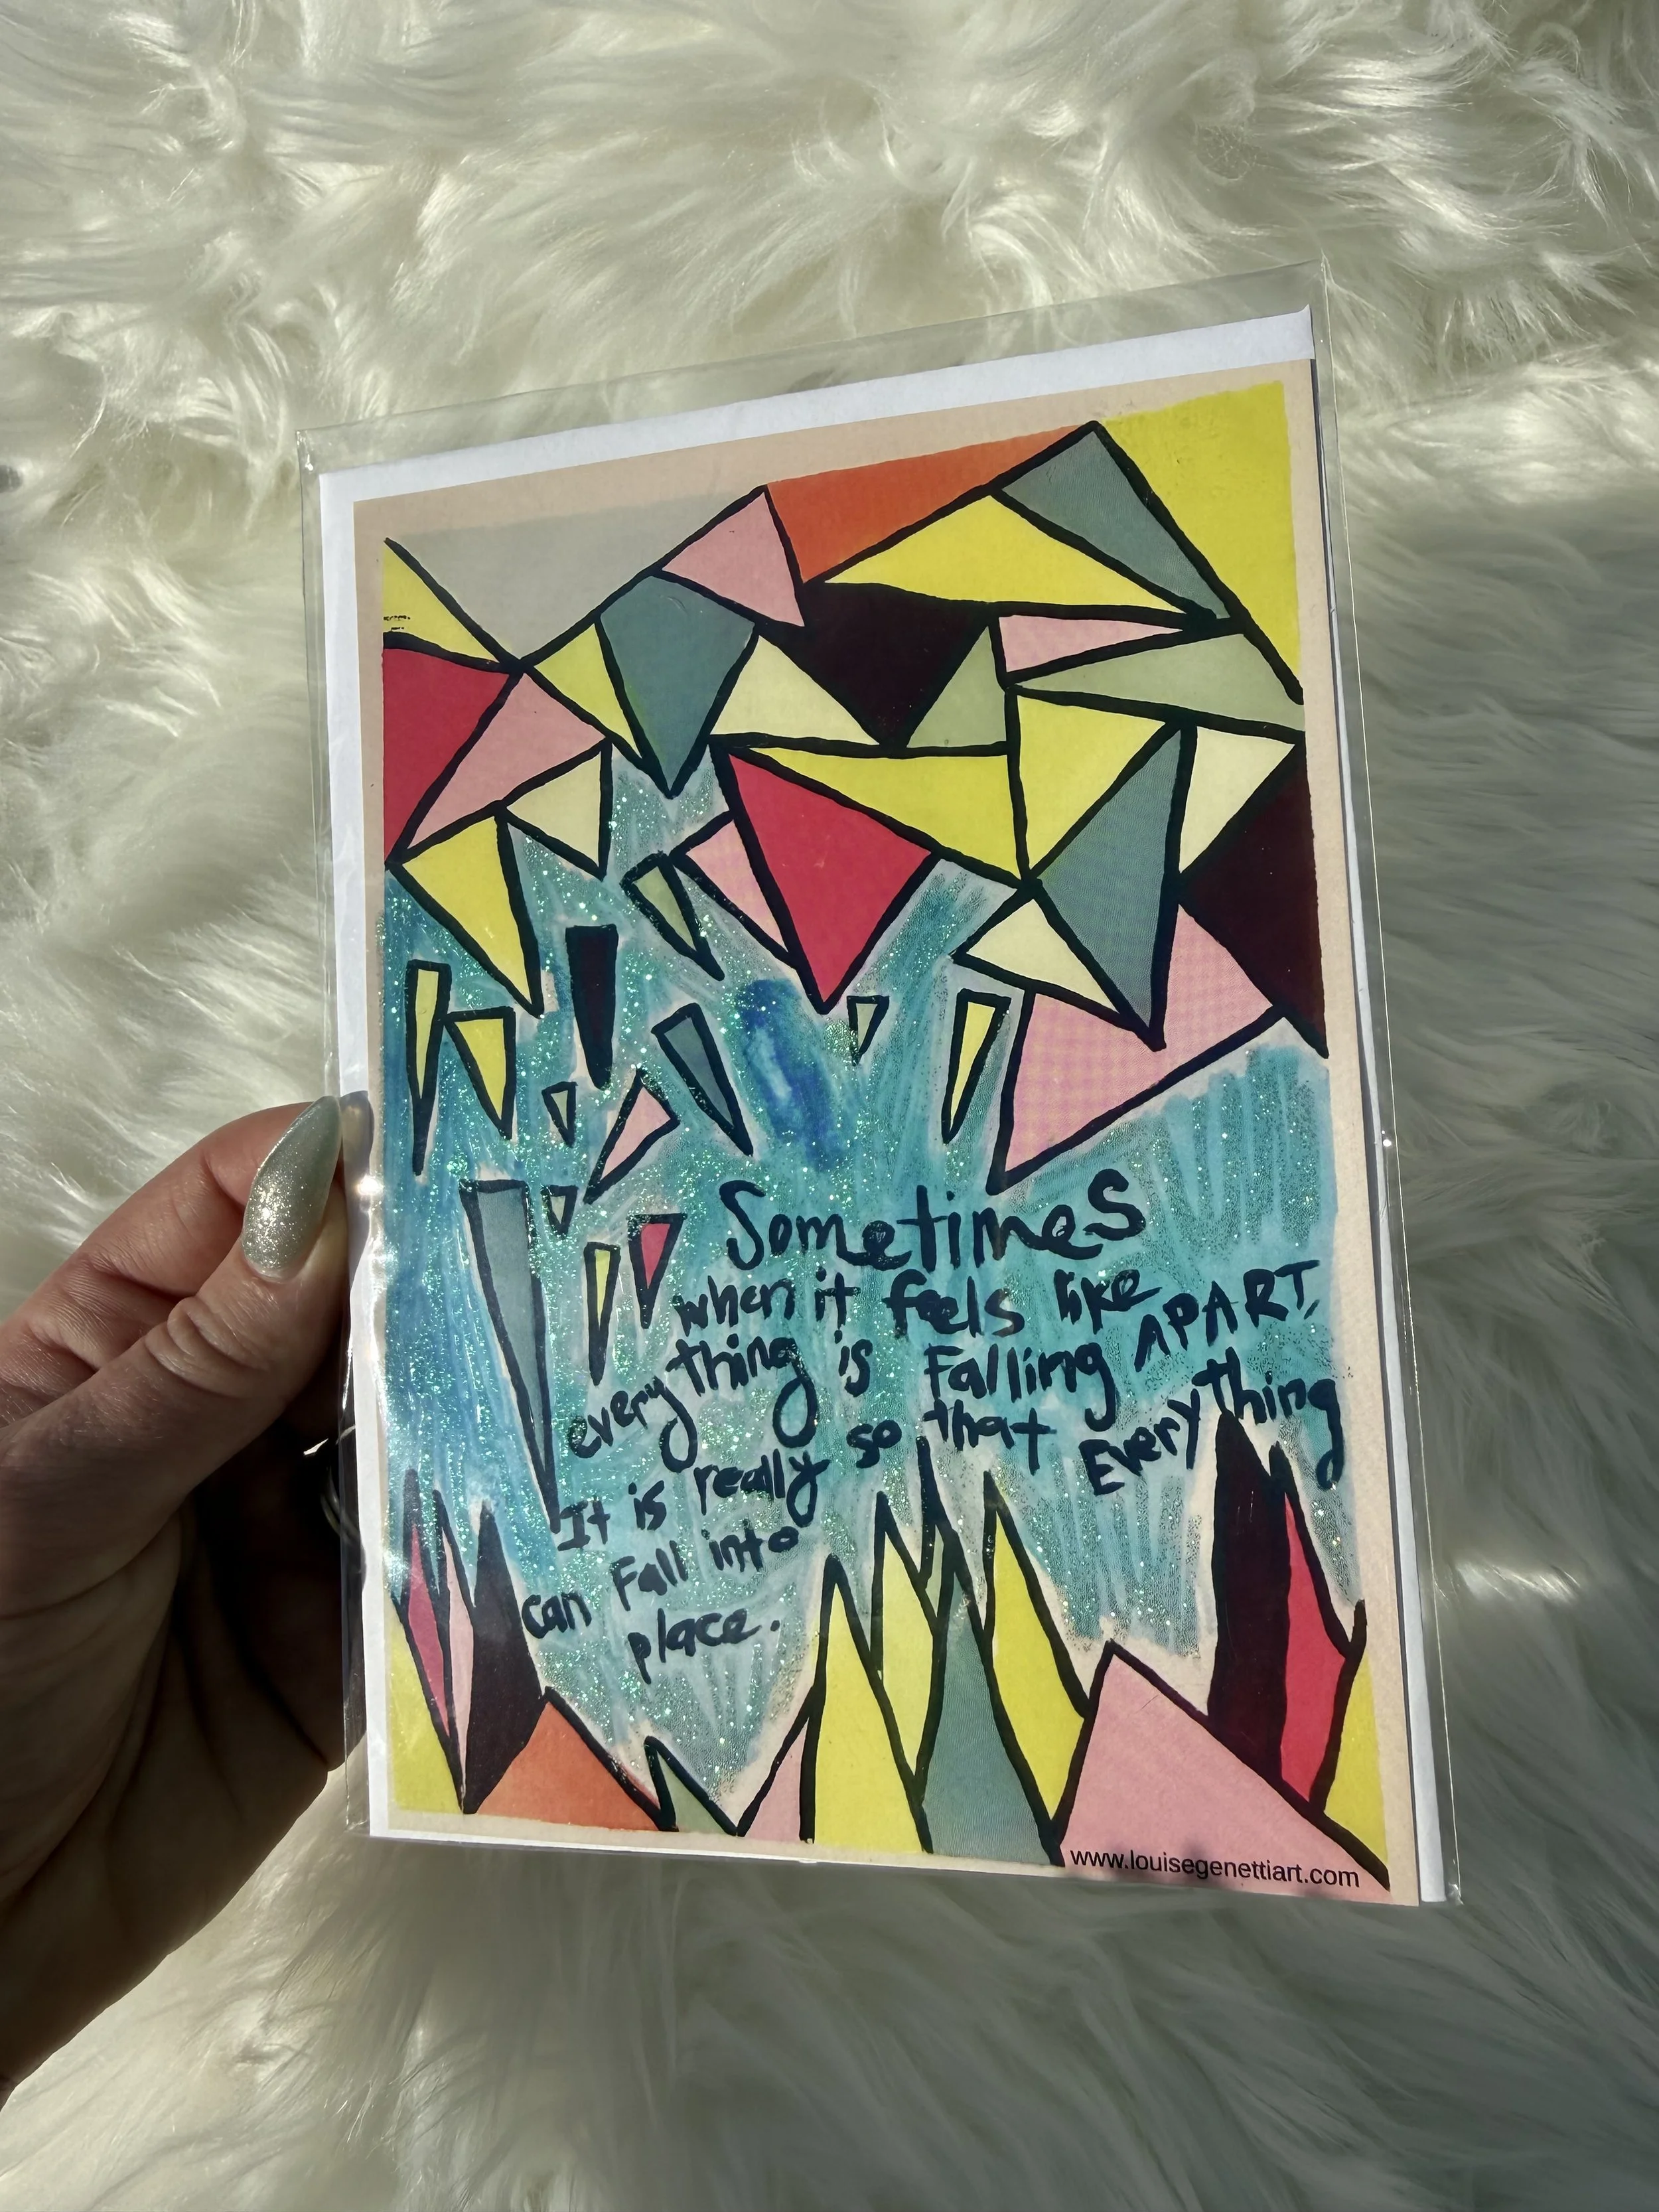 Sometimes
when it feels like
everything is Falling APART,
It is really so that Everything
can Fall into
place.
www.louisegenettiart.com